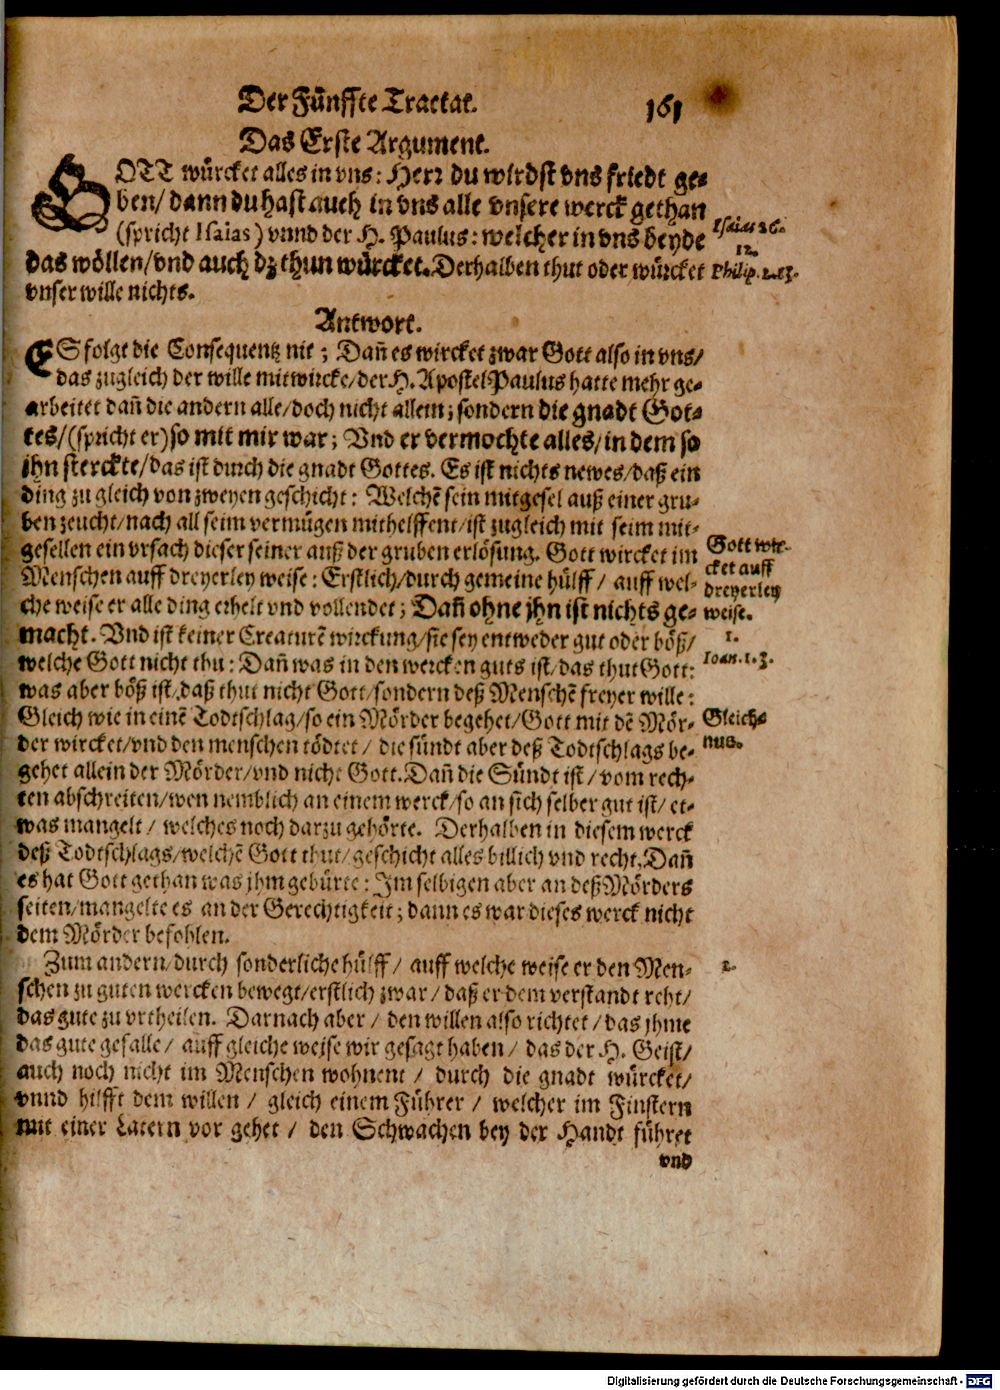 Der Fünffte Tractat. 161
Das Erste Argument.
GOTT würcket alles in vns: Herr du wirdst vns friedt ge-
ben/ dann du hast auch in vns alle vnsere werck gethan
(spricht Isaias) vnnd der H. Paulus: welcher in vns beyde
das wöllen/vnd auch dz thun würcket. Derhalben thut oder würcket
vnser wille nichts.
Isaias 26.
12.
Philip. 2.13.
Antwort.
ES folgt die Consequentz nit; Dañ es wircket zwar Gott also in vns/
das zugleich der wille mitwircke/der H. Apostel Paulus hatte mehr ge-
arbeitet dañ die andern alle/doch nicht allein; sondern die gnadt Got-
tes/(spricht er) so mit mir war; Vnd er vermochte alles/in dem so
jhn sterckte/das ist durch die gnadt Gottes. Es ist nichts newes/daß ein
ding zu gleich von zweyen geschicht: Welchẽ sein mitgesel auß einer gru-
ben zeucht/nach all seim vermügen mithelffent/ist zugleich mit seim mit-
gesellen ein vrsach dieser seiner auß der gruben erlösung. Gott wircket im
Menschen auff dreyerley weise: Erstlich/durch gemeine hülff/ auff wel-
che weise er alle ding erhelt vnd vollendet; Dañ ohne jhn ist nichts ge-
macht. Vnd ist keiner Creaturẽ wirckung/sie sey entweder gut oder böß/
welche Gott nicht thu: Dañ was in den wercken guts ist/das thut Gott:
was aber böß ist/daß thut nicht Gott/sondern deß Menschẽ freyer wille:
Gleich wie in einẽ Todtschlag/so ein Mörder begehet/Gott mit dẽ Mör-
der wircket/vnd den menschen tödtet/ die sündt aber deß Todtschlags be-
gehet allein der Mörder/vnd nicht Gott. Dañ die Sündt ist/ vom rech-
ten abschreiten/wen nemblich an einem werck/so an sich selber gut ist/ et-
was mangelt/ welches noch darzu gehörte. Derhalben in diesem werck
deß Todtschlags/welchẽ Gott thut/geschicht alles billich vnd recht. Dañ
es hat Gott gethan was jhm gebürte: Im selbigen aber an deß Mörders
seiten/mangelte es an der Gerechtigkeit; dann es war dieses werck nicht
dem Mörder befohlen.
Gott wir-
cket auff
dreyerley
weise.
1.
Ioan. 1. 3.
Gleich-
nus.
Zum andern/durch sonderliche hülff/ auff welche weise er den Men-
schen zu guten wercken bewegt/erstlich zwar/ daß er dem verstandt reht/
das gute zu vrtheilen. Darnach aber/ den willen also richtet/ das jhme
das gute gefalle/ auff gleiche weise wir gesagt haben/ das der H. Geist/
auch noch nicht im Menschen wohnent/ durch die gnadt würcket/
vnnd hilfft dem willen/ gleich einem Führer/ welcher im Finstern
mit einer Latern vor gehet/ den Schwachen bey der Handt führet
2.
vnd
Digitalisierung gefördert durch die Deutsche Forschungsgemeinschaft - DFG